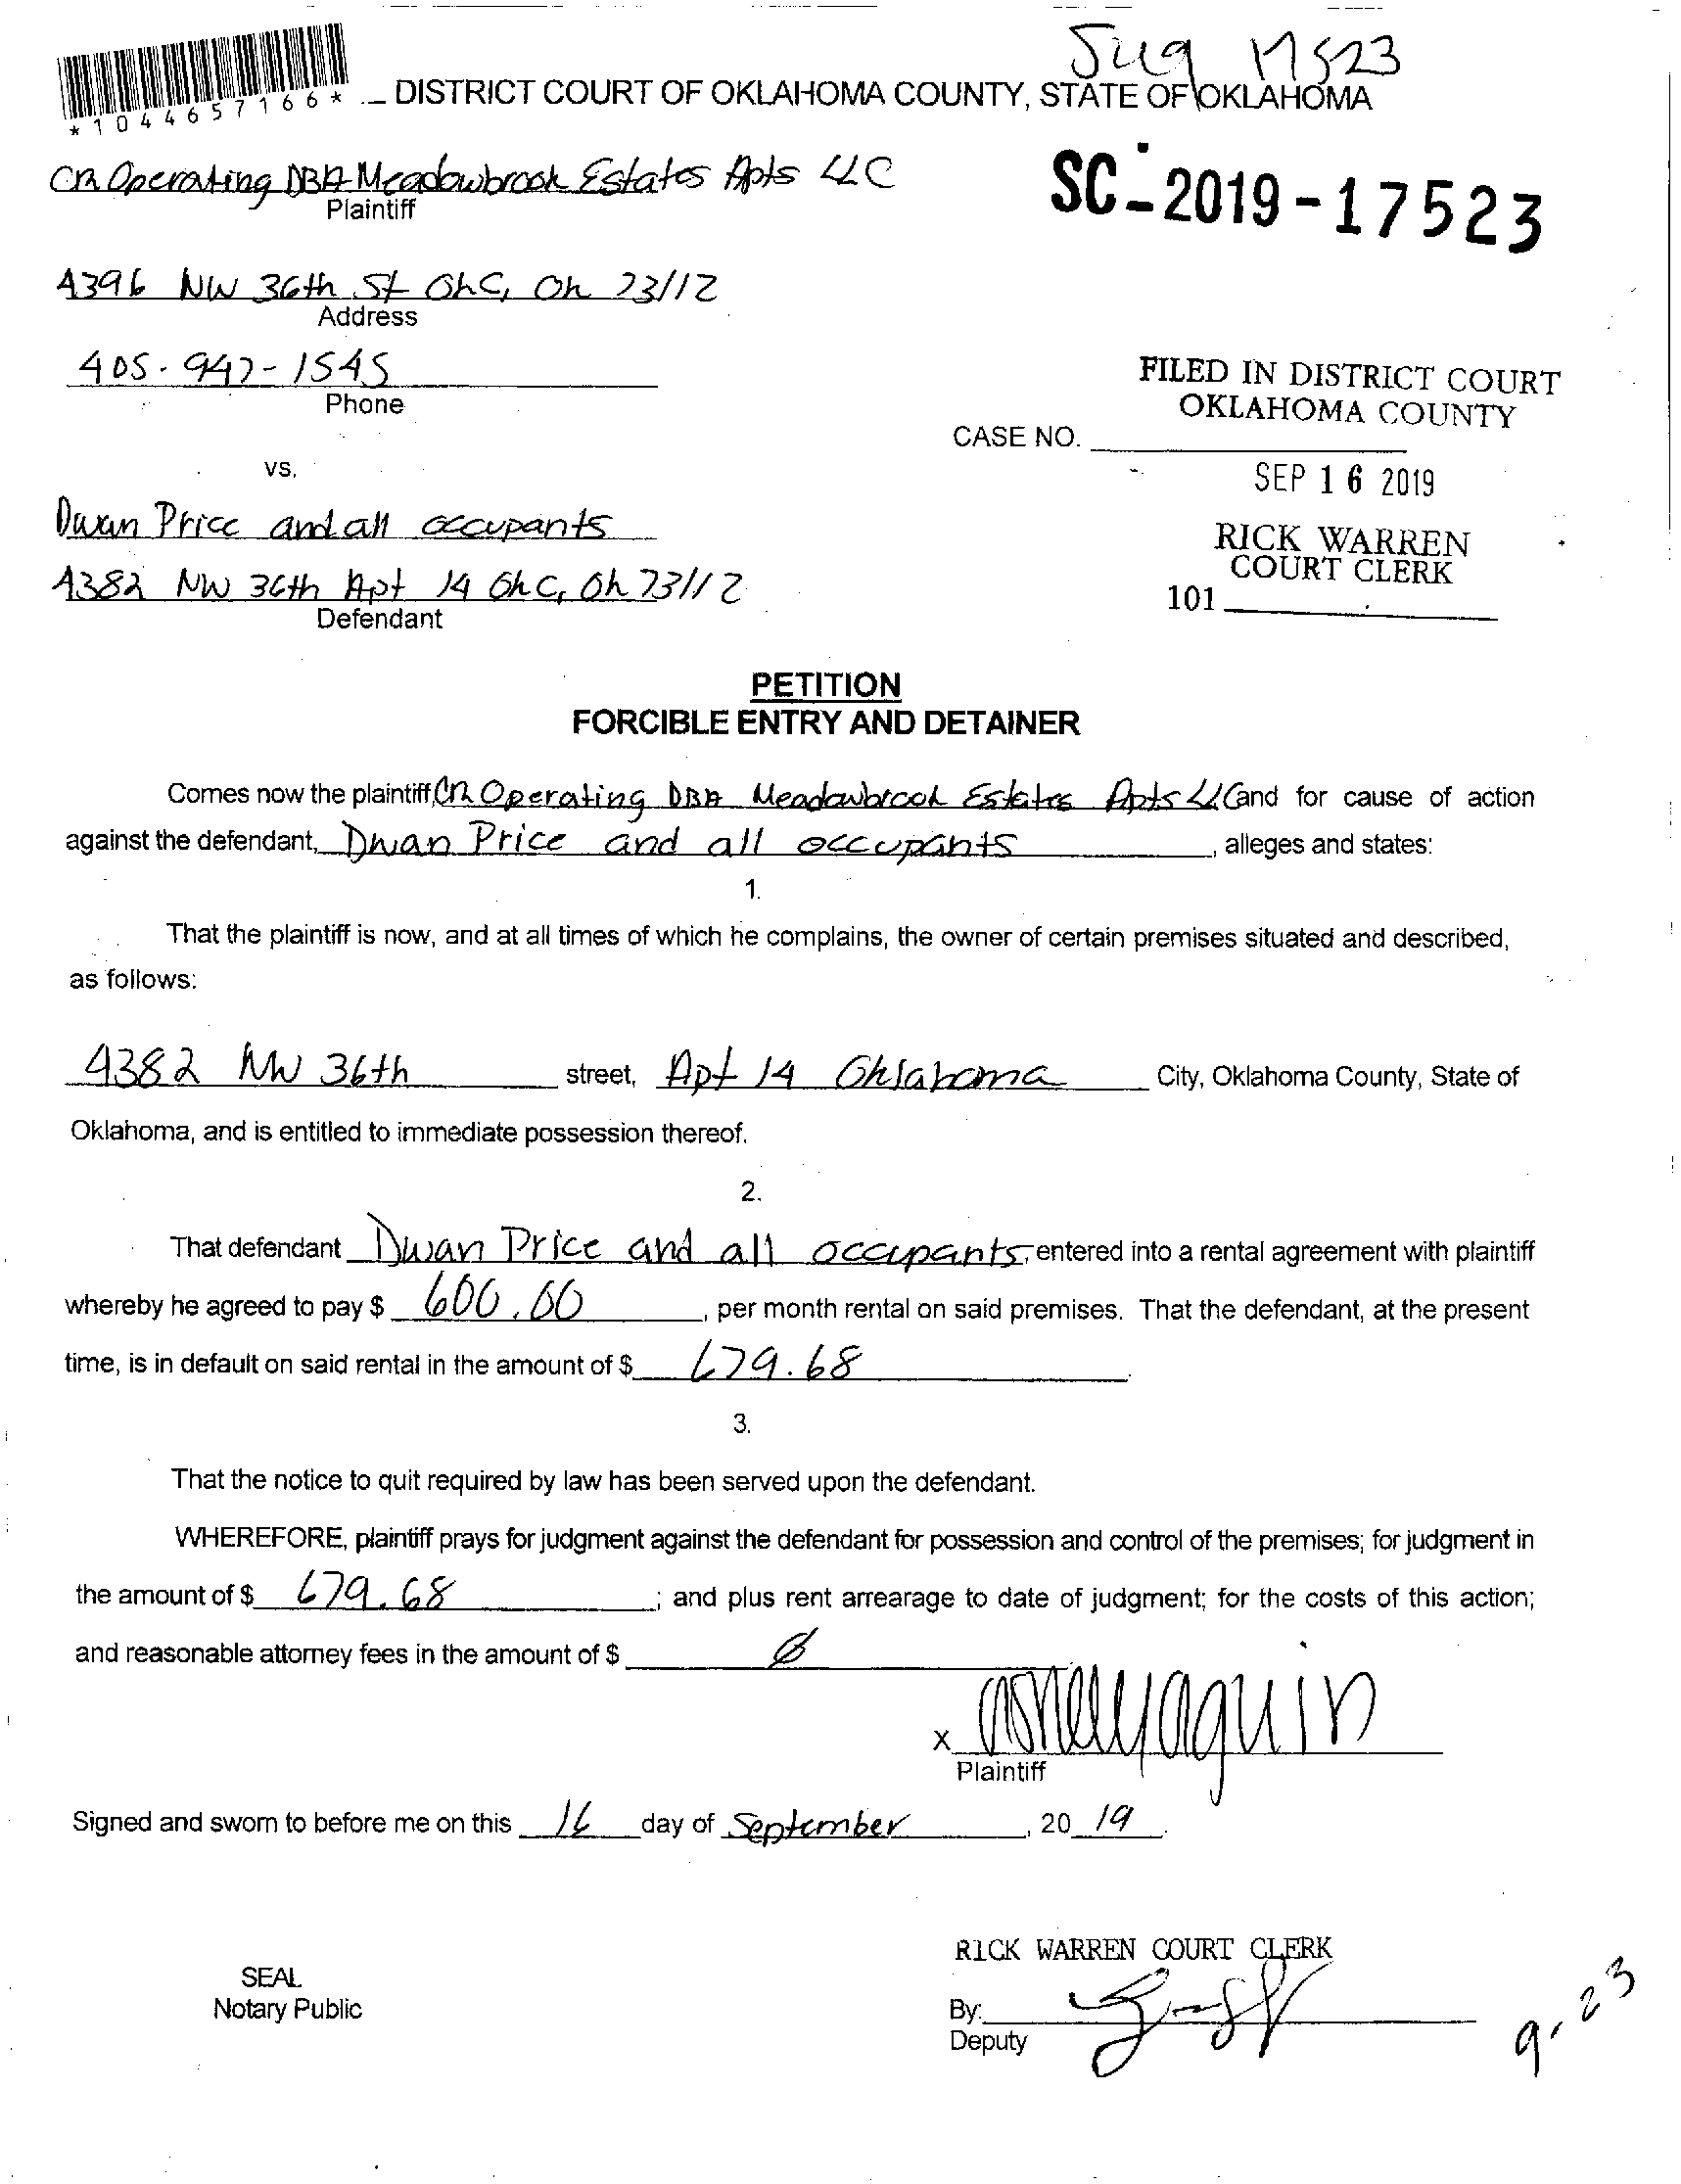 Jug 17523
*1044657166*
DISTRICT COURT OF OKLAHOMA COUNTY, STATE OF OKLAHOMA
CR Operating DBA Meadowbrook Estates Apts LLC
Plaintiff
SC-2019-17523
4396 NW 36th St OkC, Ok 73112
Address
405-947-1545
Phone
FILED IN DISTRICT COURT
OKLAHOMA COUNTY
CASE NO.
vs.
SEP 16 2019
Dwan Price and all occupants
RICK WARREN
COURT CLERK
4382 NW 36th Apt 14 OkC, Ok 73112
101
Defendant
PETITION
FORCIBLE ENTRY AND DETAINER
Comes now the plaintiff, CR Operating DBA Meadowbrook Estates Apts LLC and for cause of action
against the defendant, Dwan Price and all occupants, alleges and states:
1.
That the plaintiff is now, and at all times of which he complains, the owner of certain premises situated and described,
as follows:
4382 NW 36th street, Apt 14 Oklahoma City, Oklahoma County, State of
Oklahoma, and is entitled to immediate possession thereof.
2.
That defendant Dwan Price and all occupants, entered into a rental agreement with plaintiff
whereby he agreed to pay $ 600.00, per month rental on said premises. That the defendant, at the present
time, is in default on said rental in the amount of $ 679.68.
3.
That the notice to quit required by law has been served upon the defendant.
WHEREFORE, plaintiff prays for judgment against the defendant for possession and control of the premises; for judgment in
the amount of $ 679.68; and plus rent arrearage to date of judgment; for the costs of this action;
and reasonable attorney fees in the amount of $ Ø
X
Plaintiff
Signed and sworn to before me on this 16 day of September, 20 19.
RICK WARREN COURT CLERK
SEAL
Notary Public
By:
Deputy
9-23